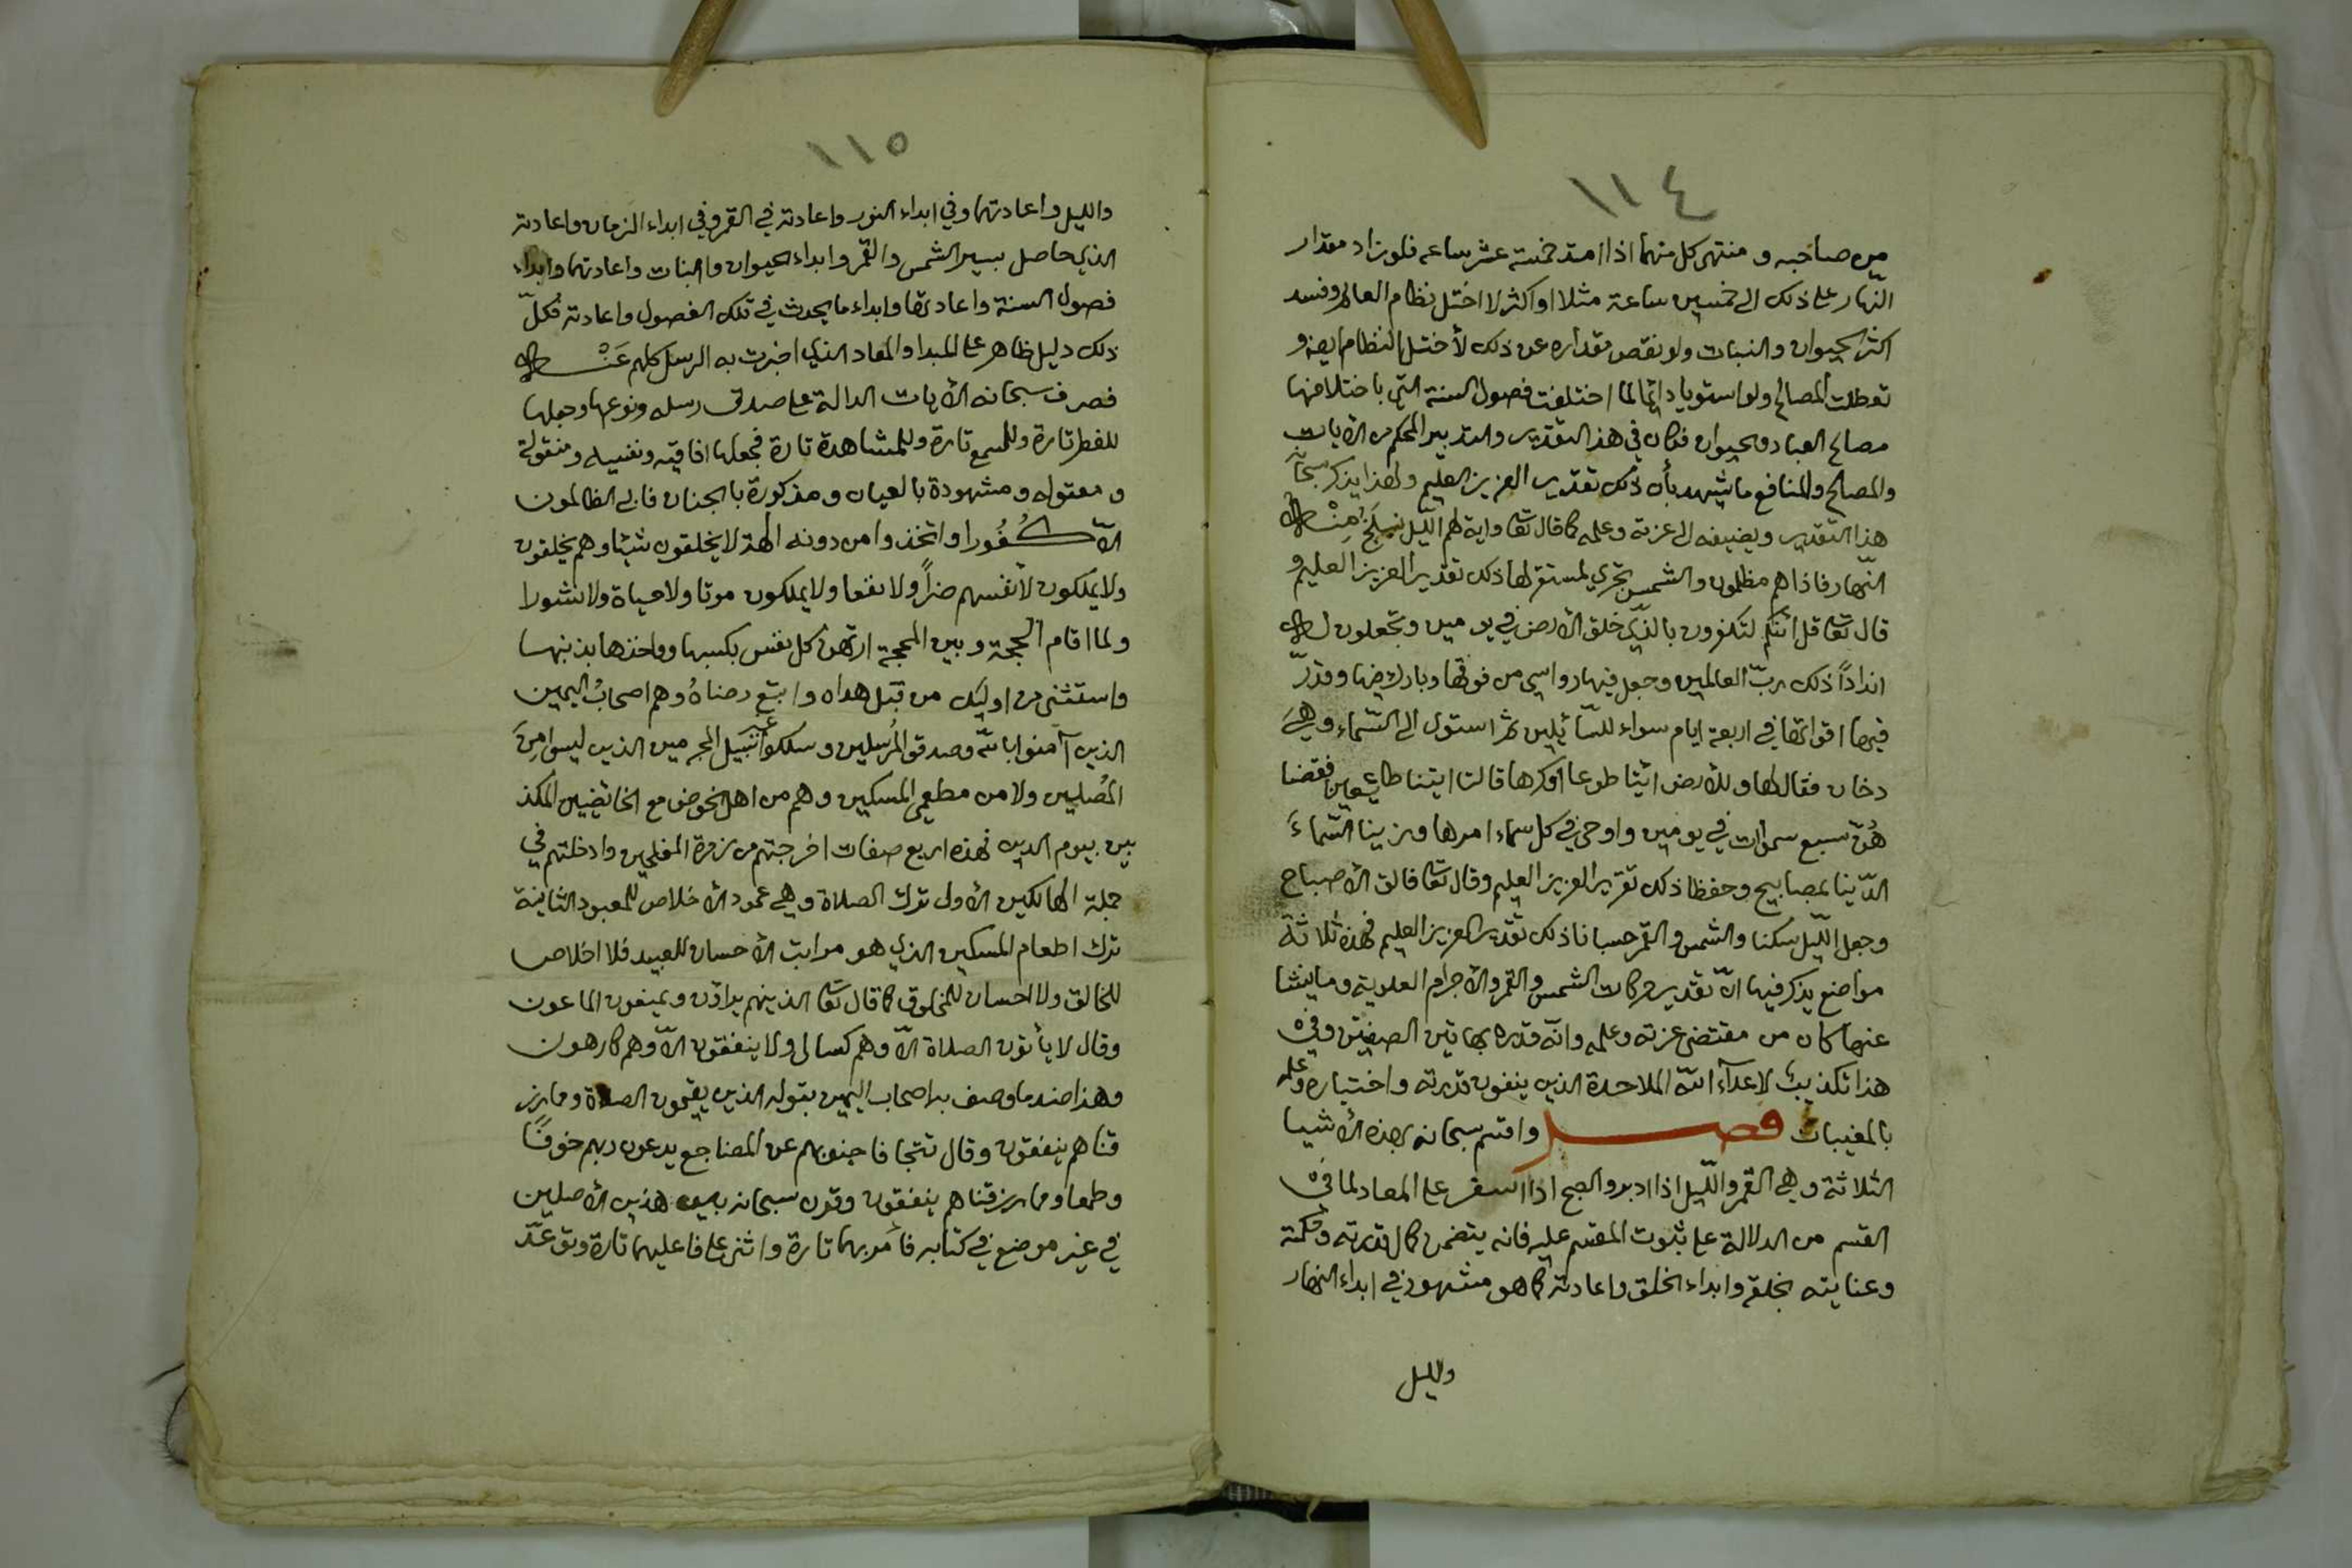 ١١٤
من صاحبه و منتهى كل منهما اذا امتد خمسة عشر ساعه فلو زاد مقدار
النّهار على ذلك الى خمسين ساعة مثلا او اكثر لا اختل نظام العالم وفسد
اكثر الحيوان والنبات ولو نقص مقداره عن ذلك لأختل النظام ايضا و
تعطلت المصالح ولو استويا دائما لما اختلفت فصول السنة التي باختلافها
مصالح العباد والحيوان فكان في هذا التقدير والتدبير المحكم من الأيات
والمصالح والمنافع ما يشهد بأن ذلك تقدير العزيز العليم ولهذا يذكر سبحانه
هذا التقدير ويضيفه الى عزته وعلمه كما قال تعا واية لهم الليل نسلخ مِنْه
النّهار فاذا هم مظلمون والشمس تجري لمستقر لها ذلك تقدير العزيز العليم و
قال تعا قل ائنكم لتكفرون بالذي خلق الأرض في يومين وتجعلون له
انداداً ذلك ربّ العالمين وجعل فيها رواسي من فوقها وبارك فيها وقدّر
فيها اقواتها في اربعة ايام سواء للسّائلين ثم استوى الى السّماء وهيَ
دخان فقال لها وللأرض ائتيا طوعا او كرها قالتا اتينا طايعين فقضا
هُنّ سبع سموات في يومين واوحى في كل سماء امرها وزينا السّماءَ
الدّنيا بمصابيح وحفظا ذلك تقدير العزيز العليم وقال تعا فالق الأصباح
وجعل الليّل سكنا والشمس والقمر حسبانا ذلك تقدير العزيز العليم فهذه ثلاثة
مواضع يذكر فيها انّ تقدير حركات الشمس والقمر والأجرام العلوية وما ينشا
عنها كان من مقتضى عزته وعلمه وانّه قدره بهاتين الصفتين وفي
هذا تكذيبٌ لاعدآء اللّه الملاحدة الذين ينفون قدرته واختياره وعلمه
بالمغيبات فصل واقسم سبحانه بهذه الأشيا
الثلاثة وهي القمر والليّل اذا ادبر والصبح اذا اسفر على المعاد لما في
القسم من الدلالة على ثبوت المقسم عليه فانه يتضمن كمال قدرته وحكمته
وعنايته بخلقه وابداء الخلق واعادته كما هو مشهود في ابداء النهار
والليل
١١٥
والليل واعادتهما وفي ابداء النور واعادته في القمر وفي ابداء الزمان واعادته
الذي حاصل بسير الشمس والقمر وابداء الحيوان والنبات واعادتهما وابداء
فصول السنة واعادتها وابداء ما يحدث في تلك الفصول واعادته فكلّ
ذلك دليل ظاهر على المبدا والمعاد الذي اخبرت به الرسل كلهم عَنْه
فصرف سبحانه الأيات الدالة على صدق رسله ونوعها وجعلها
للفطر تارة وللسمع تارة وللمشاهدة تارة فجعلها افاقيه ونفسيه ومنقولة
ومعقوله ومشهودة بالعيان ومذكورة بالجنان فابى الظالمون
الاّ كُفُورا واتخذوا من دونه الهة لا يخلقون شيئا وهم يخلقون
ولا يملكون لأنفسهم ضراً ولا نفعا ولا يملكون موتا ولا حياة ولا نشورا
ولما اقام الحجة وبين المحجة ارتهن كل نفس بكسبها وواخذها بذنبها
واستثنى من اوليك من قبل هداه واتبع رضاهُ وهم اصحابُ اليمين
الذين آمنوا باللّه وصدقوا المُرسلين وسلكوا غير سبيل المجرمين الذين ليسوا مِنَ
المُصلين ولا من مطعمي المسكين وهم من اهل الخوض مع الخائضين المكذ
بين بيوم الدين فهذه اربع صفات اخرجتهم من زمرة المفلحين وادخلتهم في
جملة الهالكين الأولى ترك الصلاة وهي عمود الأخلاص للمعبود الثانية
ترك اطعام المسكين الذي هو مراتب الأحسان للعبيد فلا اخلاص
للخالق ولا احسان للمخلوق كما قال تعا الذين هم يراؤن ويمنعون الماعون
وقال لا يأتون الصلاة الاّ وهم كسالى ولا ينفقون الاّ وهم كارهون
وهذا ضد ما وصف به اصحاب اليمين بقوله الذين يقيمون الصلاة ومما رز
قناهم ينفقون وقال تتجافا جنوبهم عن المضاجع يدعون ربهم خوفًا
وطمعا ومما رزقناهم ينفقون وقرن سبحانه بين هذين الأصلين
في غير موضع في كتابه فأمر بهما تارة واثنى على فاعليهما تارة وتوعّد